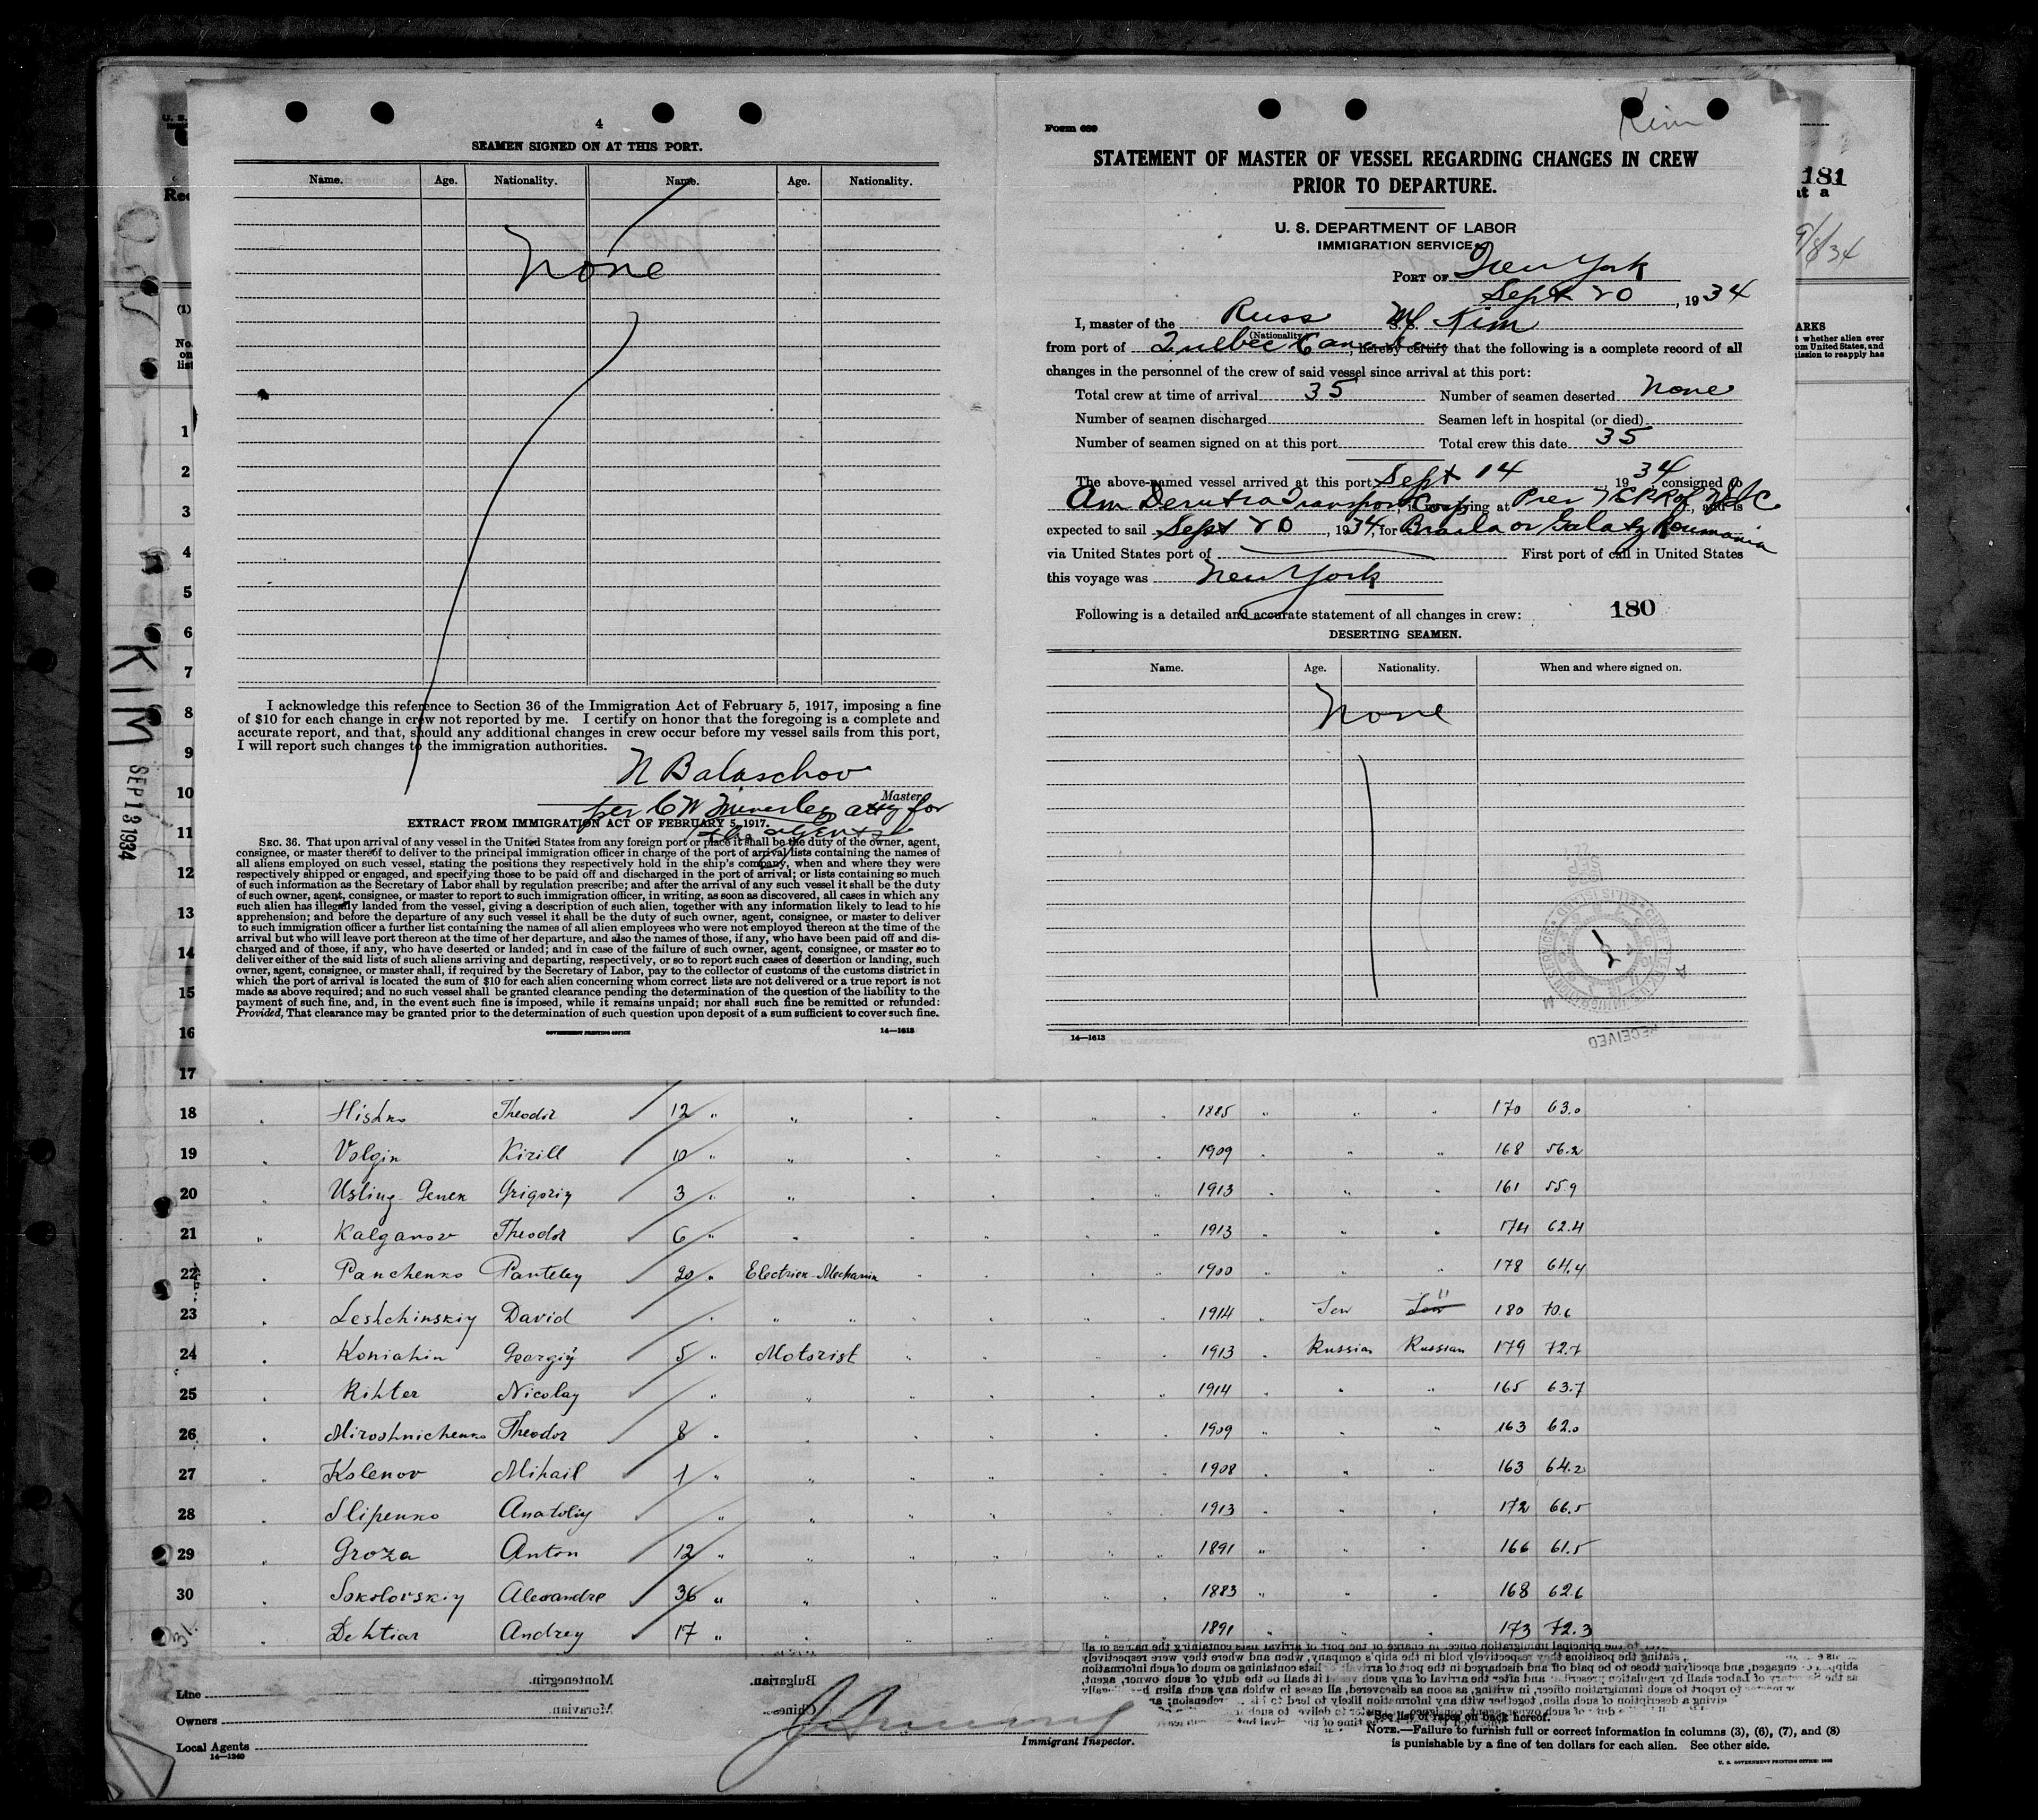 4
SEAMEN SIGNED ON AT THIS PORT.
Name. Age. Nationality. Name. Age. Nationality.
None
I acknowledge this reference to Section 36 of the Immigration Act of February 5, 1917, imposing a fine
of $10 for each change in crew not reported by me. I certify on honor that the foregoing is a complete and
accurate report, and that, should any additional changes in crew occur before my vessel sails from this port,
I will report such changes to the immigration authorities.
N Balaschov
Master
per C W atty for
the agents
EXTRACT FROM IMMIGRATION ACT OF FEBRUARY 5, 1917.
SEC. 36. That upon arrival of any vessel in the United States from any foreign port or place it shall be the duty of the owner, agent,
consignee, or master thereof to deliver to the principal immigration officer in charge of the port of arrival lists containing the names of
all aliens employed on such vessel, stating the positions they respectively hold in the ship's company, when and where they were
respectively shipped or engaged, and specifying those to be paid off and discharged in the port of arrival; or lists containing so much
of such information as the Secretary of Labor shall by regulation prescribe; and after the arrival of any such vessel it shall be the duty
of such owner, agent, consignee, or master to report to such immigration officer, in writing, as soon as discovered, all cases in which any
such alien has illegally landed from the vessel, giving a description of such alien, together with any information likely to lead to his
apprehension; and before the departure of any such vessel it shall be the duty of such owner, agent, consignee, or master to deliver
to such immigration officer a further list containing the names of all alien employees who were not employed thereon at the time of the
arrival but who will leave port thereon at the time of her departure, and also the names of those, if any, who have been paid off and dis-
charged and of those, if any, who have deserted or landed; and in case of the failure of such owner, agent, consignee, or master so to
deliver either of the said lists of such aliens arriving and departing, respectively, or so to report such cases of desertion or landing, such
owner, agent, consignee, or master shall, if required by the Secretary of Labor, pay to the collector of customs of the customs district in
which the port of arrival is located the sum of $10 for each alien concerning whom correct lists are not delivered or a true report is not
made as above required; and no such vessel shall be granted clearance pending the determination of the question of the liability to the
payment of such fine, and, in the event such fine is imposed, while it remains unpaid; nor shall such fine be remitted or refunded:
Provided, That clearance may be granted prior to the determination of such question upon deposit of a sum sufficient to cover such fine.
GOVERNMENT PRINTING OFFICE 14—1613
Kim
Form 689
STATEMENT OF MASTER OF VESSEL REGARDING CHANGES IN CREW
PRIOR TO DEPARTURE.
U. S. DEPARTMENT OF LABOR
IMMIGRATION SERVICE
PORT OF New York
Sept 20, 1934
I, master of the Russ M/S Kim
(Nationality)
from port of Quebec Canada, hereby certify that the following is a complete record of all
changes in the personnel of the crew of said vessel since arrival at this port:
Total crew at time of arrival 35 Number of seamen deserted None
Number of seamen discharged Seamen left in hospital (or died)
Number of seamen signed on at this port Total crew this date 35
The above-named vessel arrived at this port Sept 14, 1934, consigned to
Am Derutra Transport Corp, is now lying at Pier, and is
expected to sail Sept 20, 1934, for Braila or Galatz Roumania
via United States port of First port of call in United States
this voyage was New York
Following is a detailed and accurate statement of all changes in crew: 180
DESERTING SEAMEN.
Name. Age. Nationality. When and where signed on.
None
RECEIVED
14—1613
181
at a
9/8/34
ARKS
whether alien ever
om United States, and
mission to reapply has
U. S.
Rec
(1)
No.
on
list
KIM SEP 13 1934
1
2
3
4
5
6
7
8
9
10
11
12
13
14
15
16
17
18 Hishko Theodor 12 " " 1885 " " " 170 63.0
19 Volgin Kirill 10 " " 1909 " " " 168 56.2
20 Grigoriy 3 " " 1913 " " " 161 55.9
21 " Kalganov Theodor 6 " " 1913 " " " 174 62.4
22 " Panchenko Panteley 20 " Electrien-Mechanik 1900 " " " 178 64.4
23 " Leshchinskiy David " " " 1914 " Jew Jew " 180 70.6
24 " Koniahin Georgiy 5 " Motorist 1913 " Russian Russian 179 72.7
25 " Rihter Nicolay " " 1914 " " " 165 63.7
26 " Miroshnichenko Theodor 8 " " 1909 " " " 163 62.0
27 " Kolenov Mihail 1 " " 1908 " " " 163 64.2
28 " Slipenko Anatoliy " " 1913 " " " 172 66.5
29 " Groza Anton 12 " " 1891 " " " 166 61.5
30 " Sokolovskiy Alexandre 36 " " 1883 " " " 168 62.6
31. " Dehtiar Andrey 17 " " 1891 " " " 173 72.3
Montenegrin. Bulgarian.
Moravian. Chinese.
Line
Owners
Local Agents
14—1240
Immigrant Inspector.
See list of races on back hereof.
NOTE.—Failure to furnish full or correct information in columns (3), (6), (7), and (8)
is punishable by a fine of ten dollars for each alien. See other side.
U. S. GOVERNMENT PRINTING OFFICE